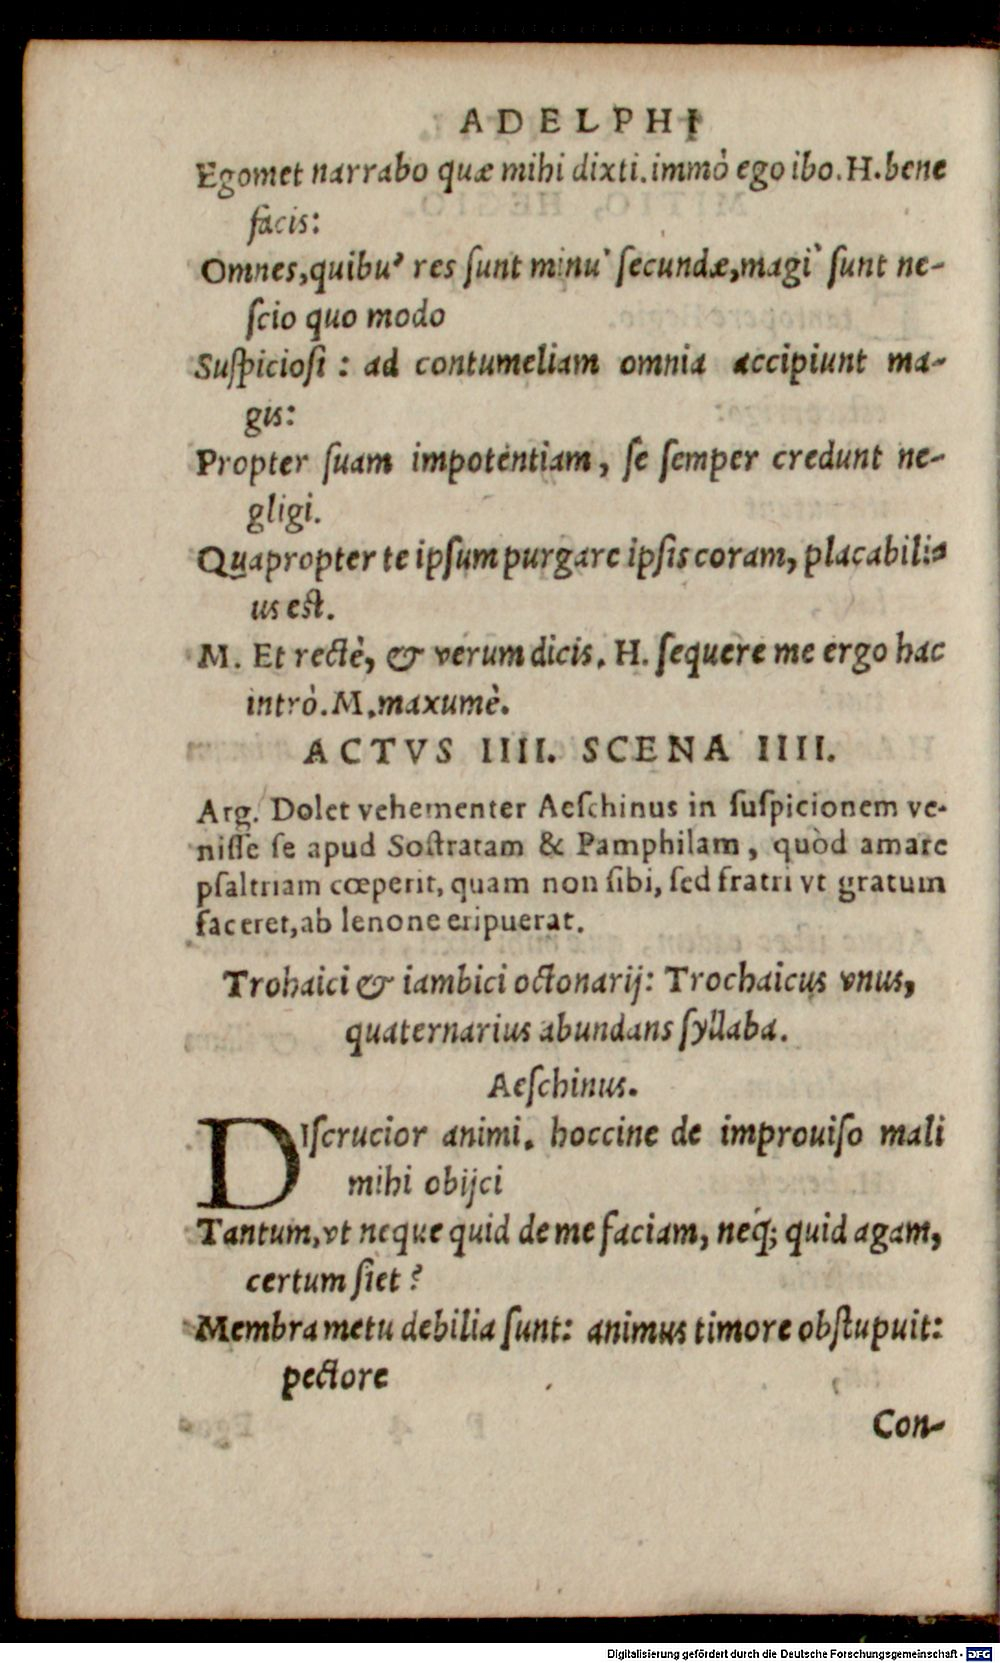 ADELPHI
Egomet narrabo quæ mihi dixti. immò ego ibo. H. bene
facis:
Omnes, quibu' res ſunt minu' ſecundæ, magi' ſunt ne-
ſcio quo modo
Suſpicioſi : ad contumeliam omnia accipiunt ma-
gis:
Propter ſuam impotentiam, ſe ſemper credunt ne-
gligi.
Quapropter te ipſum purgare ipſis coram, placabili-
us eſt.
M. Et rectè, & verum dicis. H. ſequere me ergo hac
intrò. M. maxumè.
ACTVS IIII. SCENA IIII.
Arg. Dolet vehementer Aeſchinus in ſuſpicionem ve-
niſſe ſe apud Soſtratam & Pamphilam, quòd amare
pſaltriam cœperit, quam non ſibi, ſed fratri vt gratum
faceret, ab lenone eripuerat.
Trohaici & iambici octonarij: Trochaicus vnus,
quaternarius abundans ſyllaba.
Aeſchinus.
DIſcrucior animi. hoccine de improuiſo mali
mihi obijci
Tantum, vt neque quid de me faciam, neq́; quid agam,
certum ſiet?
Membra metu debilia ſunt: animus timore obſtupuit:
pectore
Con-
Digitalisierung gefördert durch die Deutsche Forschungsgemeinschaft - DFG